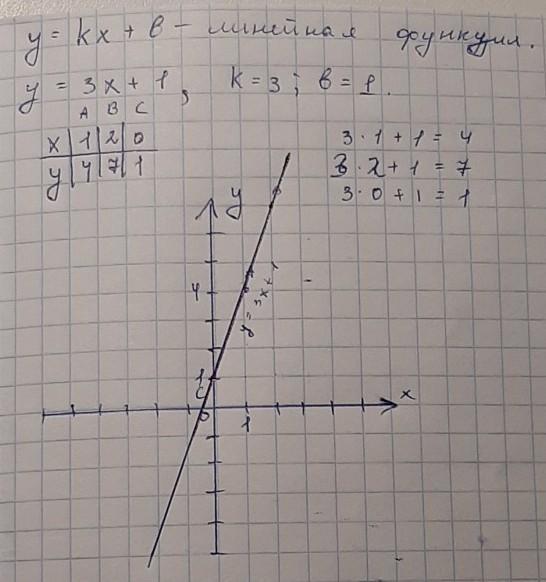 y = kx + b – линейная функция.
y = 3x + 1, k = 3; b = 1.
A B C
x | 1 | 2 | 0
y | 4 | 7 | 1
3 · 1 + 1 = 4
3 · 2 + 1 = 7
3 · 0 + 1 = 1
y
4
A
y = 3x + 1
1
C
x
0
1